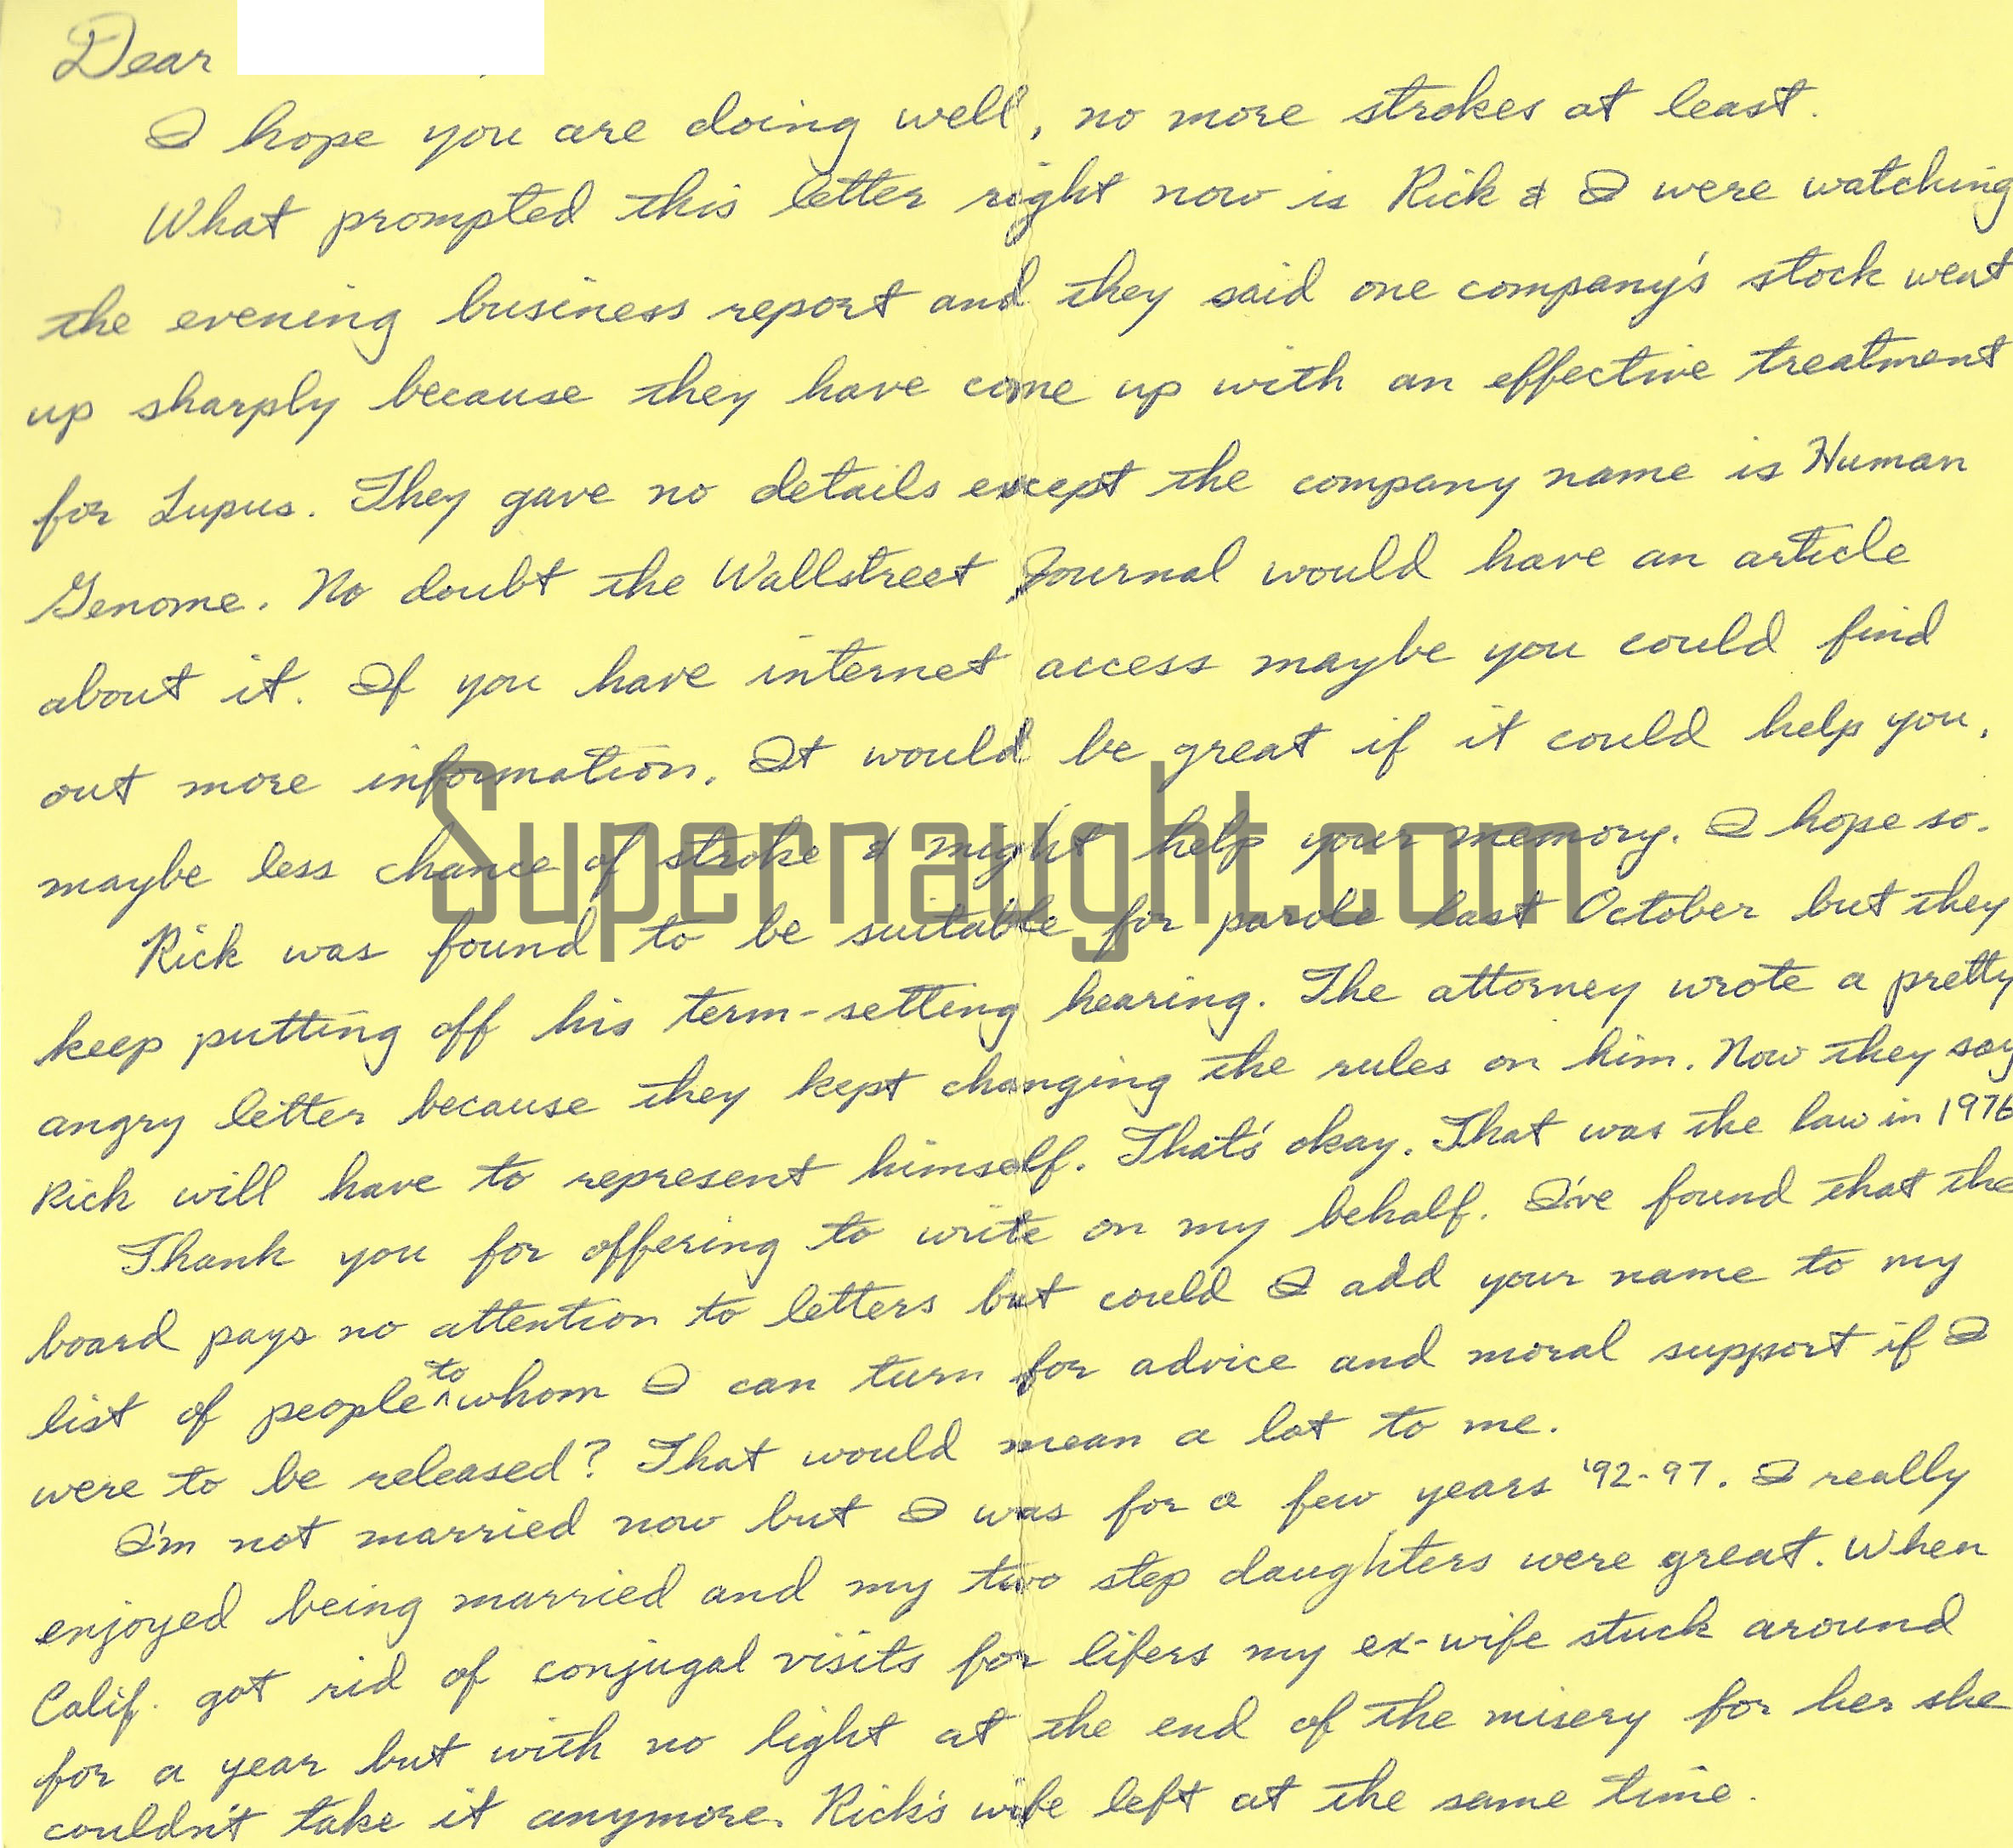 Dear
I hope you are doing well, no more strokes at least.
What prompted this letter right now is Rick & I were watching
the evening business report and they said one company's stock went
up sharply because they have come up with an effective treatment
for Lupus. They gave no details except the company name is Human
Genome. No doubt the Wallstreet Journal would have an article
about it. If you have internet access maybe you could find
out more information. It would be great if it could help you,
maybe less chance of stroke & might help your memory. I hope so.
Supernaught.com
Rick was found to be suitable for parole last October but they
keep putting off his term-setting hearing. The attorney wrote a pretty
angry letter because they kept changing the rules on him. Now they say
Rick will have to represent himself. That's okay. That was the law in 1976
Thank you for offering to write on my behalf. I've found that the
board pays no attention to letters but could I add your name to my
list of people to whom I can turn for advice and moral support if I
were to be released? That would mean a lot to me.
I'm not married now but I was for a few years '92-97. I really
enjoyed being married and my two step daughters were great. When
Calif. got rid of conjugal visits for lifers my ex-wife stuck around
for a year but with no light at the end of the misery for her she
couldn't take it anymore. Rick's wife left at the same time.